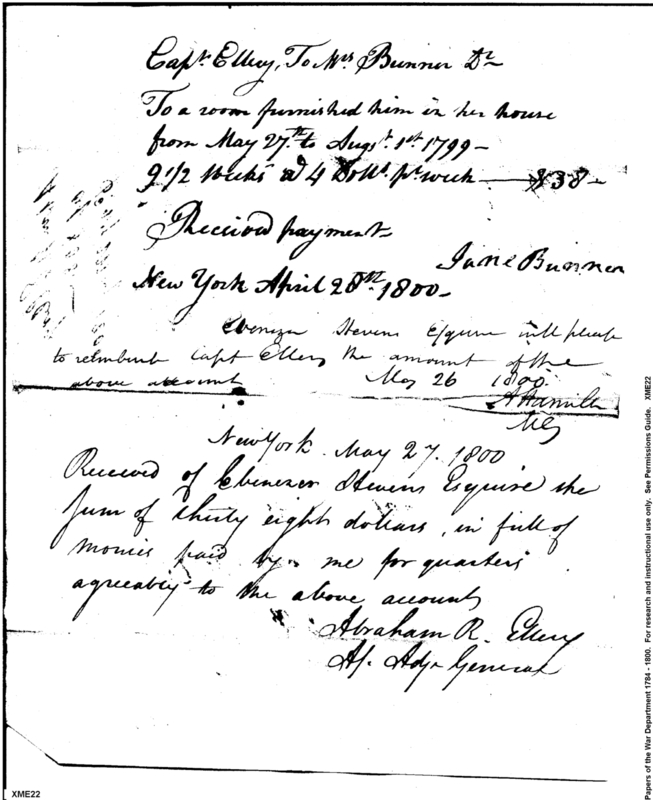 Capt. Ellery, To Mrs Bunner Dr
To a room furnished him in her house
from May 27.th to Augst. 1st 1799 –
9 1/2 Weeks @ 4 Dolls. pr week — $38 –
Received payment –
Jane Bunner
New York April 28th. 1800 –
Ebenezer Stevens Esquire will please
to reimburse Capt Ellery the amount of the
above account May 26 1800
A Hamilton
MG
New York. May 27. 1800
Received of Ebenezer Stevens Esquire the
sum of thirty eight dollars, in full of
monies paid by me for quarters
agreeably to the above account
Abraham R. Ellery
As. Adjt General
XME22
Papers of the War Department 1784 - 1800. For research and instructional use only. See Permissions Guide. XME22